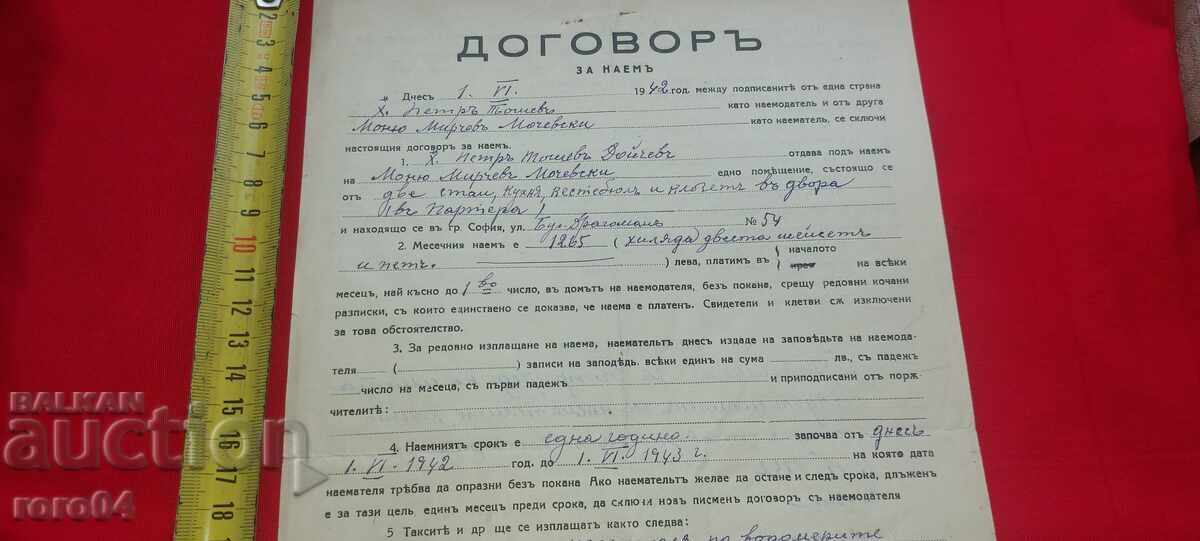 ДОГОВОРЪ
ЗА НАЕМЪ
„ Днесъ 1. VI. 1942 год. между подписанитѣ отъ една страна
Х. Петръ Тошевъ като наемодатель и отъ друга
Моню Мирчевъ Мочевски като наематель, се сключи
настоящия договоръ за наемъ.
1. Х. Петръ Тошевъ Дойчевъ отдава подъ наемъ
на Моню Мирчевъ Мочевски едно помѣщение, състояще се
отъ две стаи, кухня, вестибюлъ и клозетъ въ двора
/въ Партера/
и находящо се въ гр. София, ул. Бул. Драгоманъ № 54
2. Месечния наемъ е 1265 (хиляда двеста шейсетъ
и петъ.) лева, платимъ въ { началото
край на всѣки
месецъ, най късно до 1 во число, въ домътъ на наемодателя, безъ покана, срещу редовни кочани
разписки, съ които единствено се доказва, че наема е платенъ. Свидетели и клетви сѫ изключени
за това обстоятелство.
3. За редовно изплащане на наема, наемательтъ днесъ издаде на заповѣдьта на наемода-
теля ( ) записи на заподѣдь. всѣки единъ на сума лв., съ падежъ
число на месеца, съ първи падежъ и приподписани отъ порѫ-
чителитѣ:
4. Наемниятъ срокъ е една година. започва отъ днесъ
1. VI. 1942 год. до 1. VI. 1943 г. на която дата
наемателя трѣбва да опразни безъ покана. Ако наемательтъ желае да остане и следъ срока, длъженъ
е за тази цель, единъ месецъ преди срока, да сключи новъ писменъ договоръ съ наемодателя
5 Такситѣ и др. ще се изплащатъ както следва:
по водомерите
BALKAN
auction
roro04
2
3
4
5
6
7
8
9
10
11
12
13
14
15
16
17
18